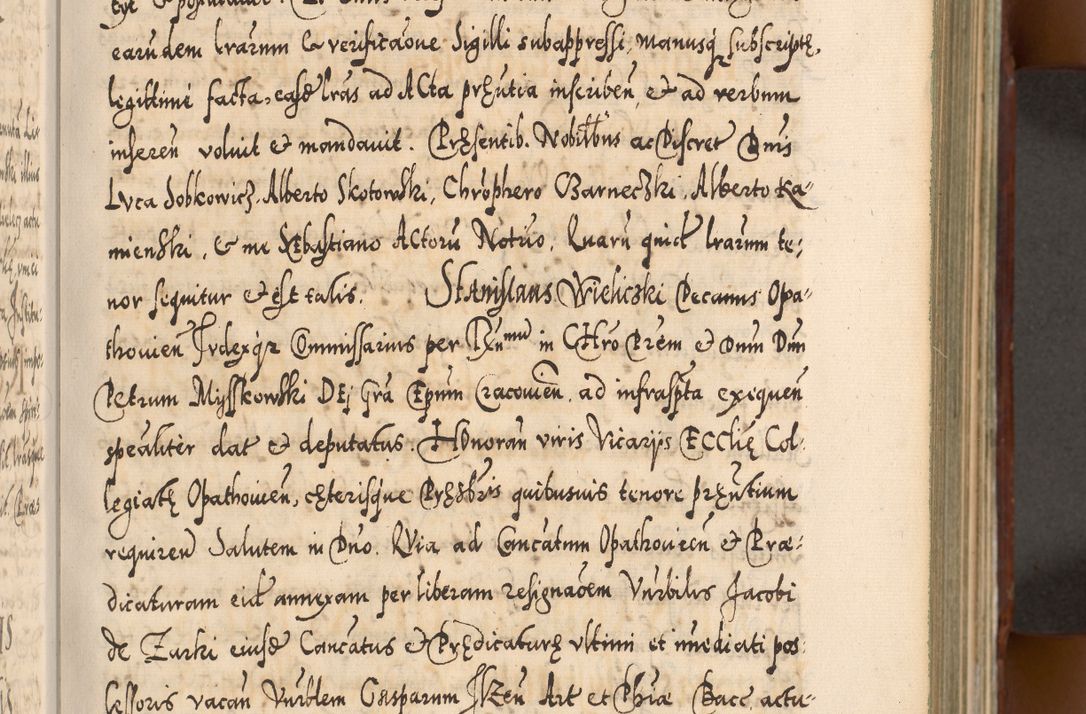 earudem lrarum & verificaõne Sigilli subappressi, manusq₃ subscriptę,
legittime facta, easd lras ad ACta pręntia inscriben, & ad verbum
inseren voluit & mandauit. Pręsentib. Nobilbus ac Discret Dnis
Lvca Sobkowicz, Alberto Skotowski, Chrophero CZarneczki, Alberto Ka-
mienski, & me SEbastiano ACtoru Notrio, Quaru quid lrarum te-
nor sequitur & est talis. Stanislaus Wieliczki Decanus Opa-
thouien Ivdexq₃ Commissarius per Rñmum in CHro Prem & Dnum Dnm
Petrum Mysskowski DEj Gra Epum Cracouien, ad infraspta exequen
spealiter dat & deputatus. HOnoran viris Vicarijs ECClię Col-
legiatę Opathouien, cęterisque Pręsbris quibusuis tenore pręntium
requiren Salutem in Dno. QVia ad Cancatum Opathouien & Præ-
dicaturam eid annexam per liberam resignaõem Vnrbilis Jacobi
de Zurki eiusd Cancatus & Prędicaturę vltimi et imediati pos-
sessoris vacan Vnrblem Gasparum JlZen Art et Phiæ Bacc actu-